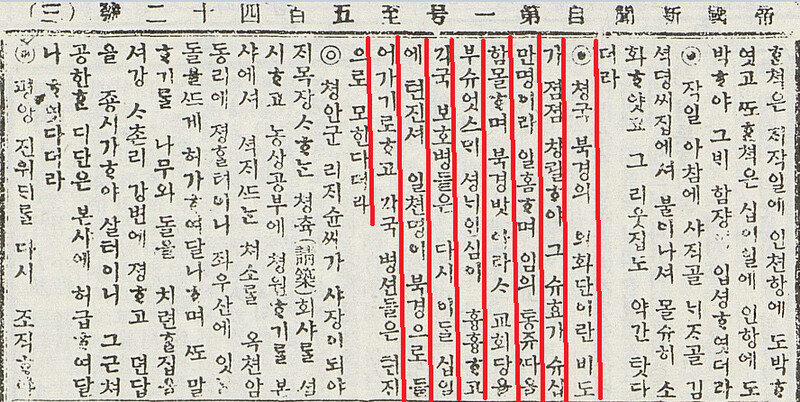 帝國新聞 自第一号至五百四十二號 (三)
ᄒᆞᆫ쳑은 ᄌᆡ작일에 인쳔항에 도박ᄒᆞ
엿고 ᄯᅩᄒᆞᆫ쳑은 십이일에 인항에 도
박ᄒᆞ야 그ᄇᆡ 함쟝이 입셩ᄒᆞ엿더라
◉ 작일 아참에 샤직골 ᄂᆡᄌᆞ골 김
셕뎡씨집에셔 불이나셔 몰슈히 소
화ᄒᆞ얏고 그 리웃집도 약간 탓다
더라
◉ 쳥국 북경의 의화단이란 비도
가 졈졈 창궐ᄒᆞ야 그 슈효가 슈십
만명이라 일홈ᄒᆞ며 임의 통쥬ᄯᅡ을
함몰ᄒᆞ며 북경밧 아라ᄉ 교회당을
부슈엇스ᄆᆡ 셩ᄂᆡ인심이 흉흉ᄒᆞ고
각국 보호병들은 다시 이들 십일
에 텬진셔 일쳔명이 북경으로 들
어가기로ᄒᆞ고 각국 병션들은 텬진
으로 모힌다더라
◎ 쳥안군 리지슌씨가 샤쟝이 되야
지목쟝ᄉᆞᄒᆞᄂᆞᆫ 쳥츅(請築)회샤를 셜
시ᄒᆞ고 농샹공부에 쳥원ᄒᆞ기를 본
샤에셔 셕ᄌᆡᄯᅳᄂᆞᆫ 쳐소를 옥쳔암
동리에 졍ᄒᆞᆯ터이니 좌우산에 잇ᄂᆞᆫ
돌을ᄯᅳ게 허가ᄒᆞ여달나ᄒᆞ며 ᄯᅩ 말
ᄒᆞ기를 나무와 돌을 치련ᄒᆞᆯ집을
셔강 ᄉᆞ촌리 강변에 졍ᄒᆞ고 뎐답
을 쥰시가ᄒᆞ야 살터이니 그근쳐
공한ᄒᆞᆫ 디단은 본샤에 허급ᄒᆞ여달
나 ᄒᆞ엿다더라
◎ 평양 진위ᄃᆡ를 다시 조직ᄒᆞ야